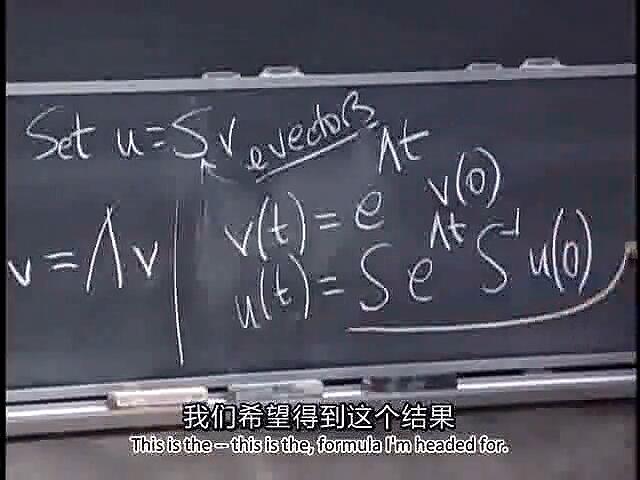 Set u = Sv evectors
v = Λv
v(t) = e^{Λt} v(0)
u(t) = S e^{Λt} S^{-1} u(0)
我们希望得到这个结果
This is the -- this is the, formula I'm headed for.